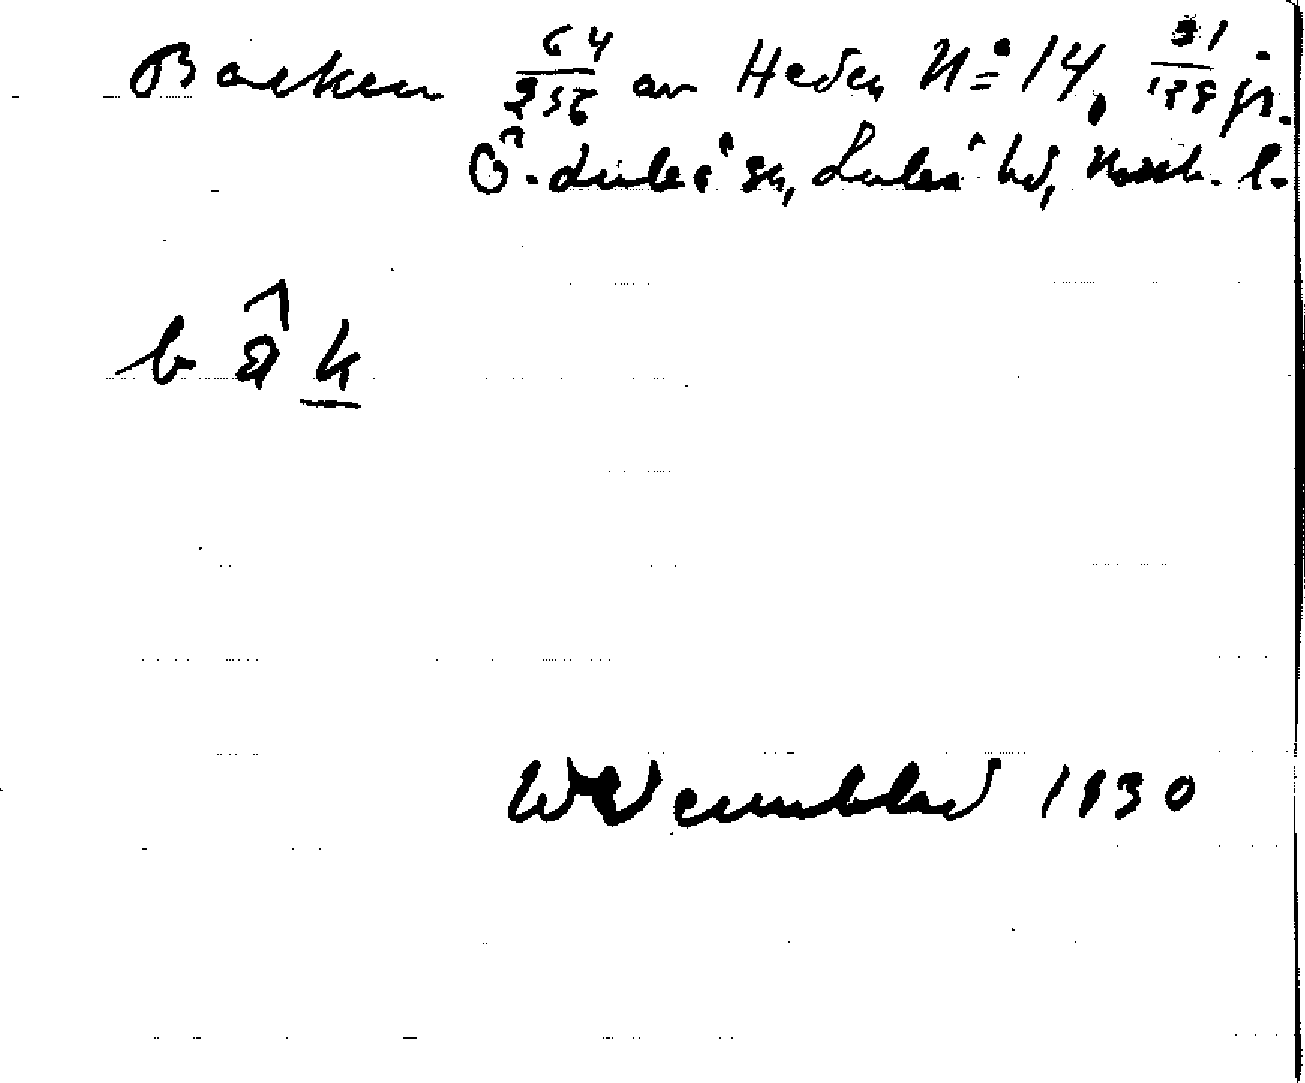 Backen 64/256 av Heden N:o 14, 31/128 jr.
Ö. Luleå sn, Luleå hd, Norrb. l.
b a k
W Wennblad 1930